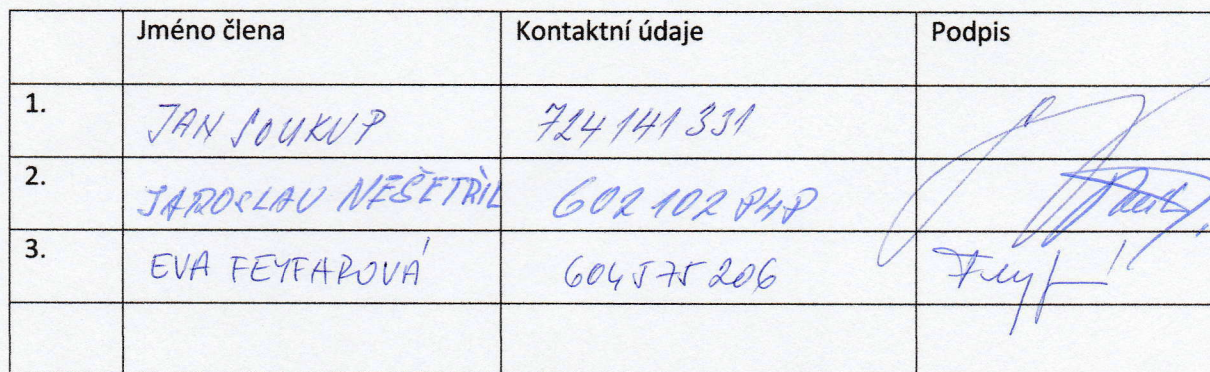 Jméno člena Kontaktní údaje Podpis
1. JAN SOUKUP 724 141 331
2. JAROSLAV NEŠETŘIL 602 102 848
3. EVA FEYFAROVÁ 604 575 206